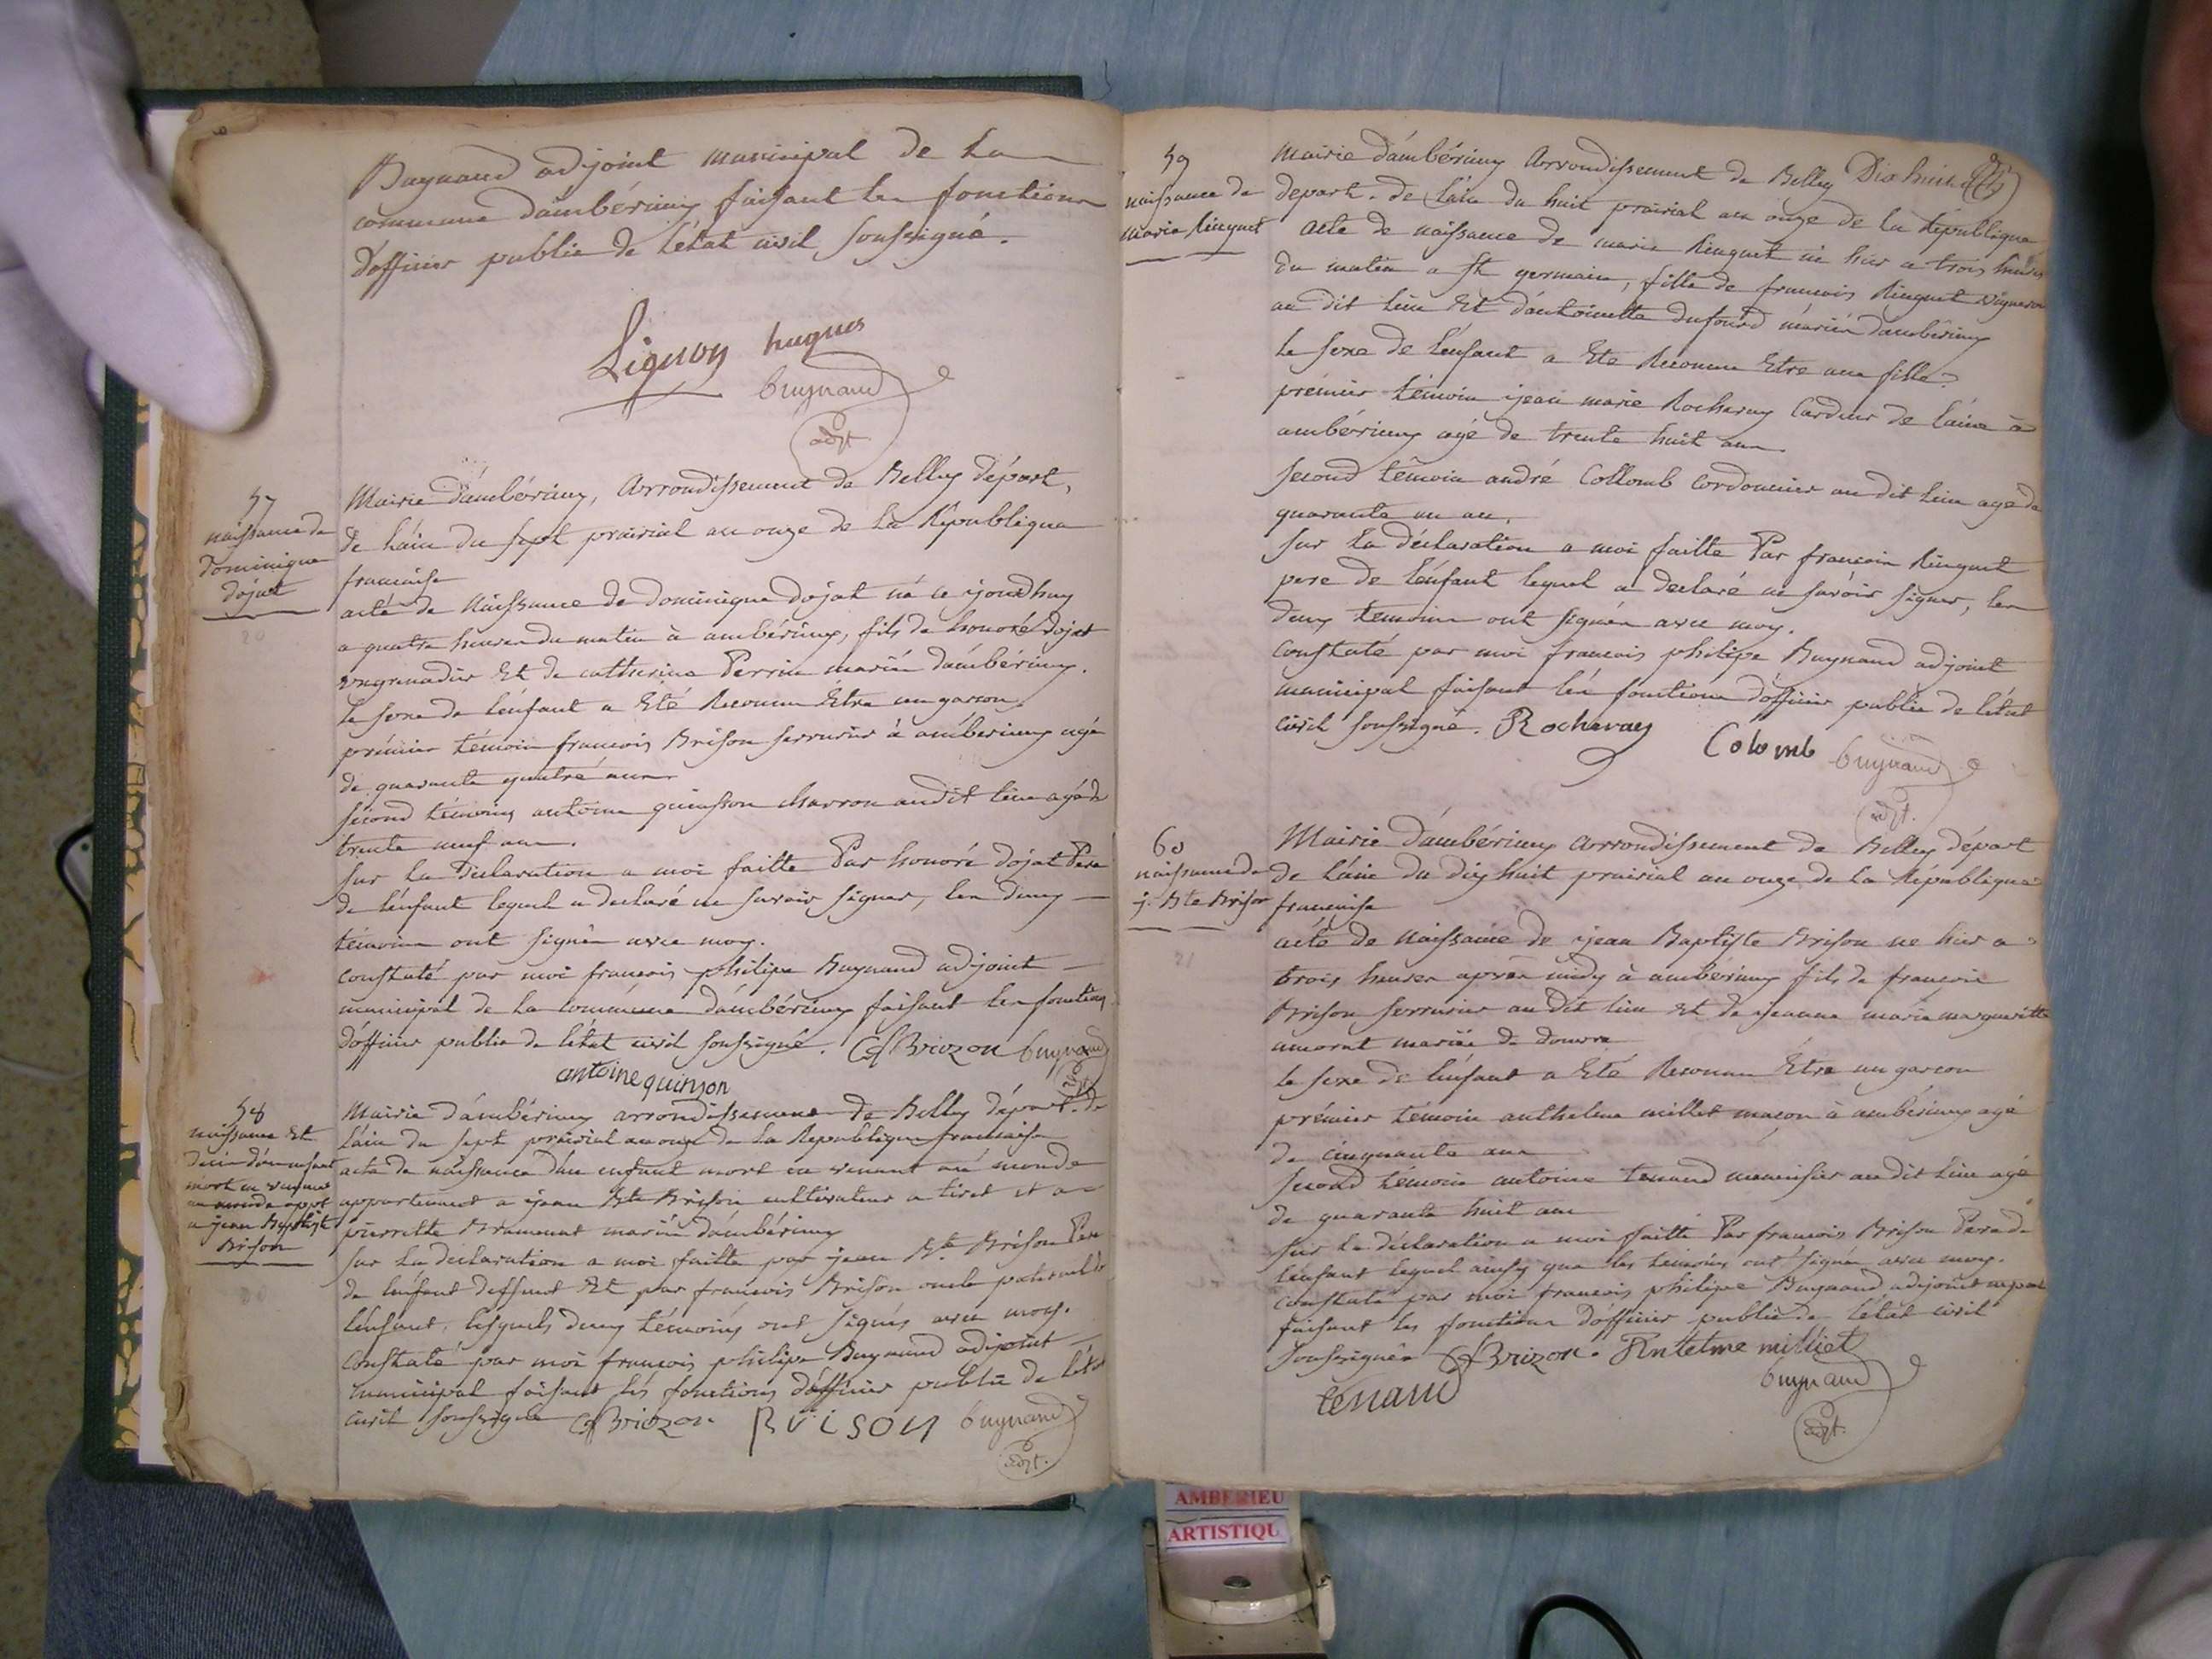 Buynand adjoint municipal de la
commune d'ambérieux faisant les fonctions
d'officier public de l'état civil soussigné.
Liguoy hugues
buynand
adjt.
57
naissance de
dominique
dojat
Mairie d'ambérieux, arrondissement de Belley départ,
de l'ain du sept prairial an onze de la République
francaise
acte de Naissance de dominique dojat né ce jourdhuy
a quatre heures du matin à ambérieux, fils de honoré dojat
et de catherine Perrin mariés d'ambérieux.
le sexe de l'enfant a Eté Reconnu Etre un garcon.
prémier témoin francois Brison serrurier à ambérieux agé
de quarante quatre ans
second témoins antoine quinson charron audit lieu agé de
trente neuf ans.
sur la déclaration a moi faitte Par honoré dojat Pere
de l'enfant lequel a declaré ne savoir signer, les deux
témoins ont signés avec moy.
constaté par moi francois philipe Buynand adjoint
municipal de la commune d'ambérieux faisant les fonctions
d'officier public de l'état civil soussigné. Briozon buynand
antoine quinson adjt
58
naissance Et
decès d'un enfant
mort en venant
au monde appt
a jean Baptiste
Brison
Mairie d'ambérieux arrondissement de Belley départ. de
l'ain du sept prairial an onze de la Republique francaise
acte de naissance d'un enfant mort en venant au monde
appartenant a jean Bte Brison cultivateur a tiret et a
pierrette Bramerat mariés d'ambérieux
sur la declaration a moi faitte par jean Bte Brison Pere
de l'enfant deffunt Et par francois Brison oncle paternel de
l'enfant, lesquels deux témoins ont signés avec moy.
Constaté par moi francois philipe Buynand adjoint
municipal faisant les fonctions d'officier public de l'état
civil soussigné Briozon BRISON buynand
adjt.
59
naissance de
marie Ringuet
Mairie d'ambérieux Arrondissement de Belley Dix huit
depart. de l'ain du huit prairial an onze de la République
acte de naissance de marie Ringuet né hier a trois heures
du matin a St germain, fille de francois Ringuet vigneron
au dit lieu Et d'antoinette dufourd mariés d'ambérieux
le sexe de l'enfant a Eté Reconnu Etre une fille
prémier témoin jean marie Rocheray Cardeur de laine à
ambérieux agé de trente huit ans
second témoin andré Collomb Cordonnier au dit lieu age de
quarante un an.
sur la déclaration a moi faitte Par francois Ringuet
pere de l'énfant lequel a declaré ne savoir signer, les
deux temoins ont signés avec moy.
constaté par moi francois philipe Buynand adjoint
municipal faisant les fonctions d'officier public de l'état
civil soussigné. Rocheray Colomb buynand
adjt.
60
naissance de
j. Bte Brison
Mairie d'ambérieux arrondissement de Belley départ
de l'ain du dix huit prairial an onze de la République
francaise
acte de Naissance de jean Baptiste Brison ne hier a
trois heures après midy à ambérieux fils de francois
Brison serrurier au dit lieu Et de jeanne marie margueritte
amorat mariés de douvre
le sexe de l'enfant a Eté Reconnu Etre un garcon
prémier témoin anthelme millet maçon à ambérieux agé
de cinquante ans
second témoin antoine tenand menuisier au dit lieu agé
de quarante huit ans
sur la déclaration a moi faitte Par francois Brison Pere de
l'enfant lequel ainsy que les témoins ont signés avec moy.
constaté par moi francois philipe Buynand adjoint
faisant les fonctions d'officier public de l'état civil
soussignés Brizon. Antelme milliet
tenand buynand
adjt.
AMBERIEU
ARTISTIQU